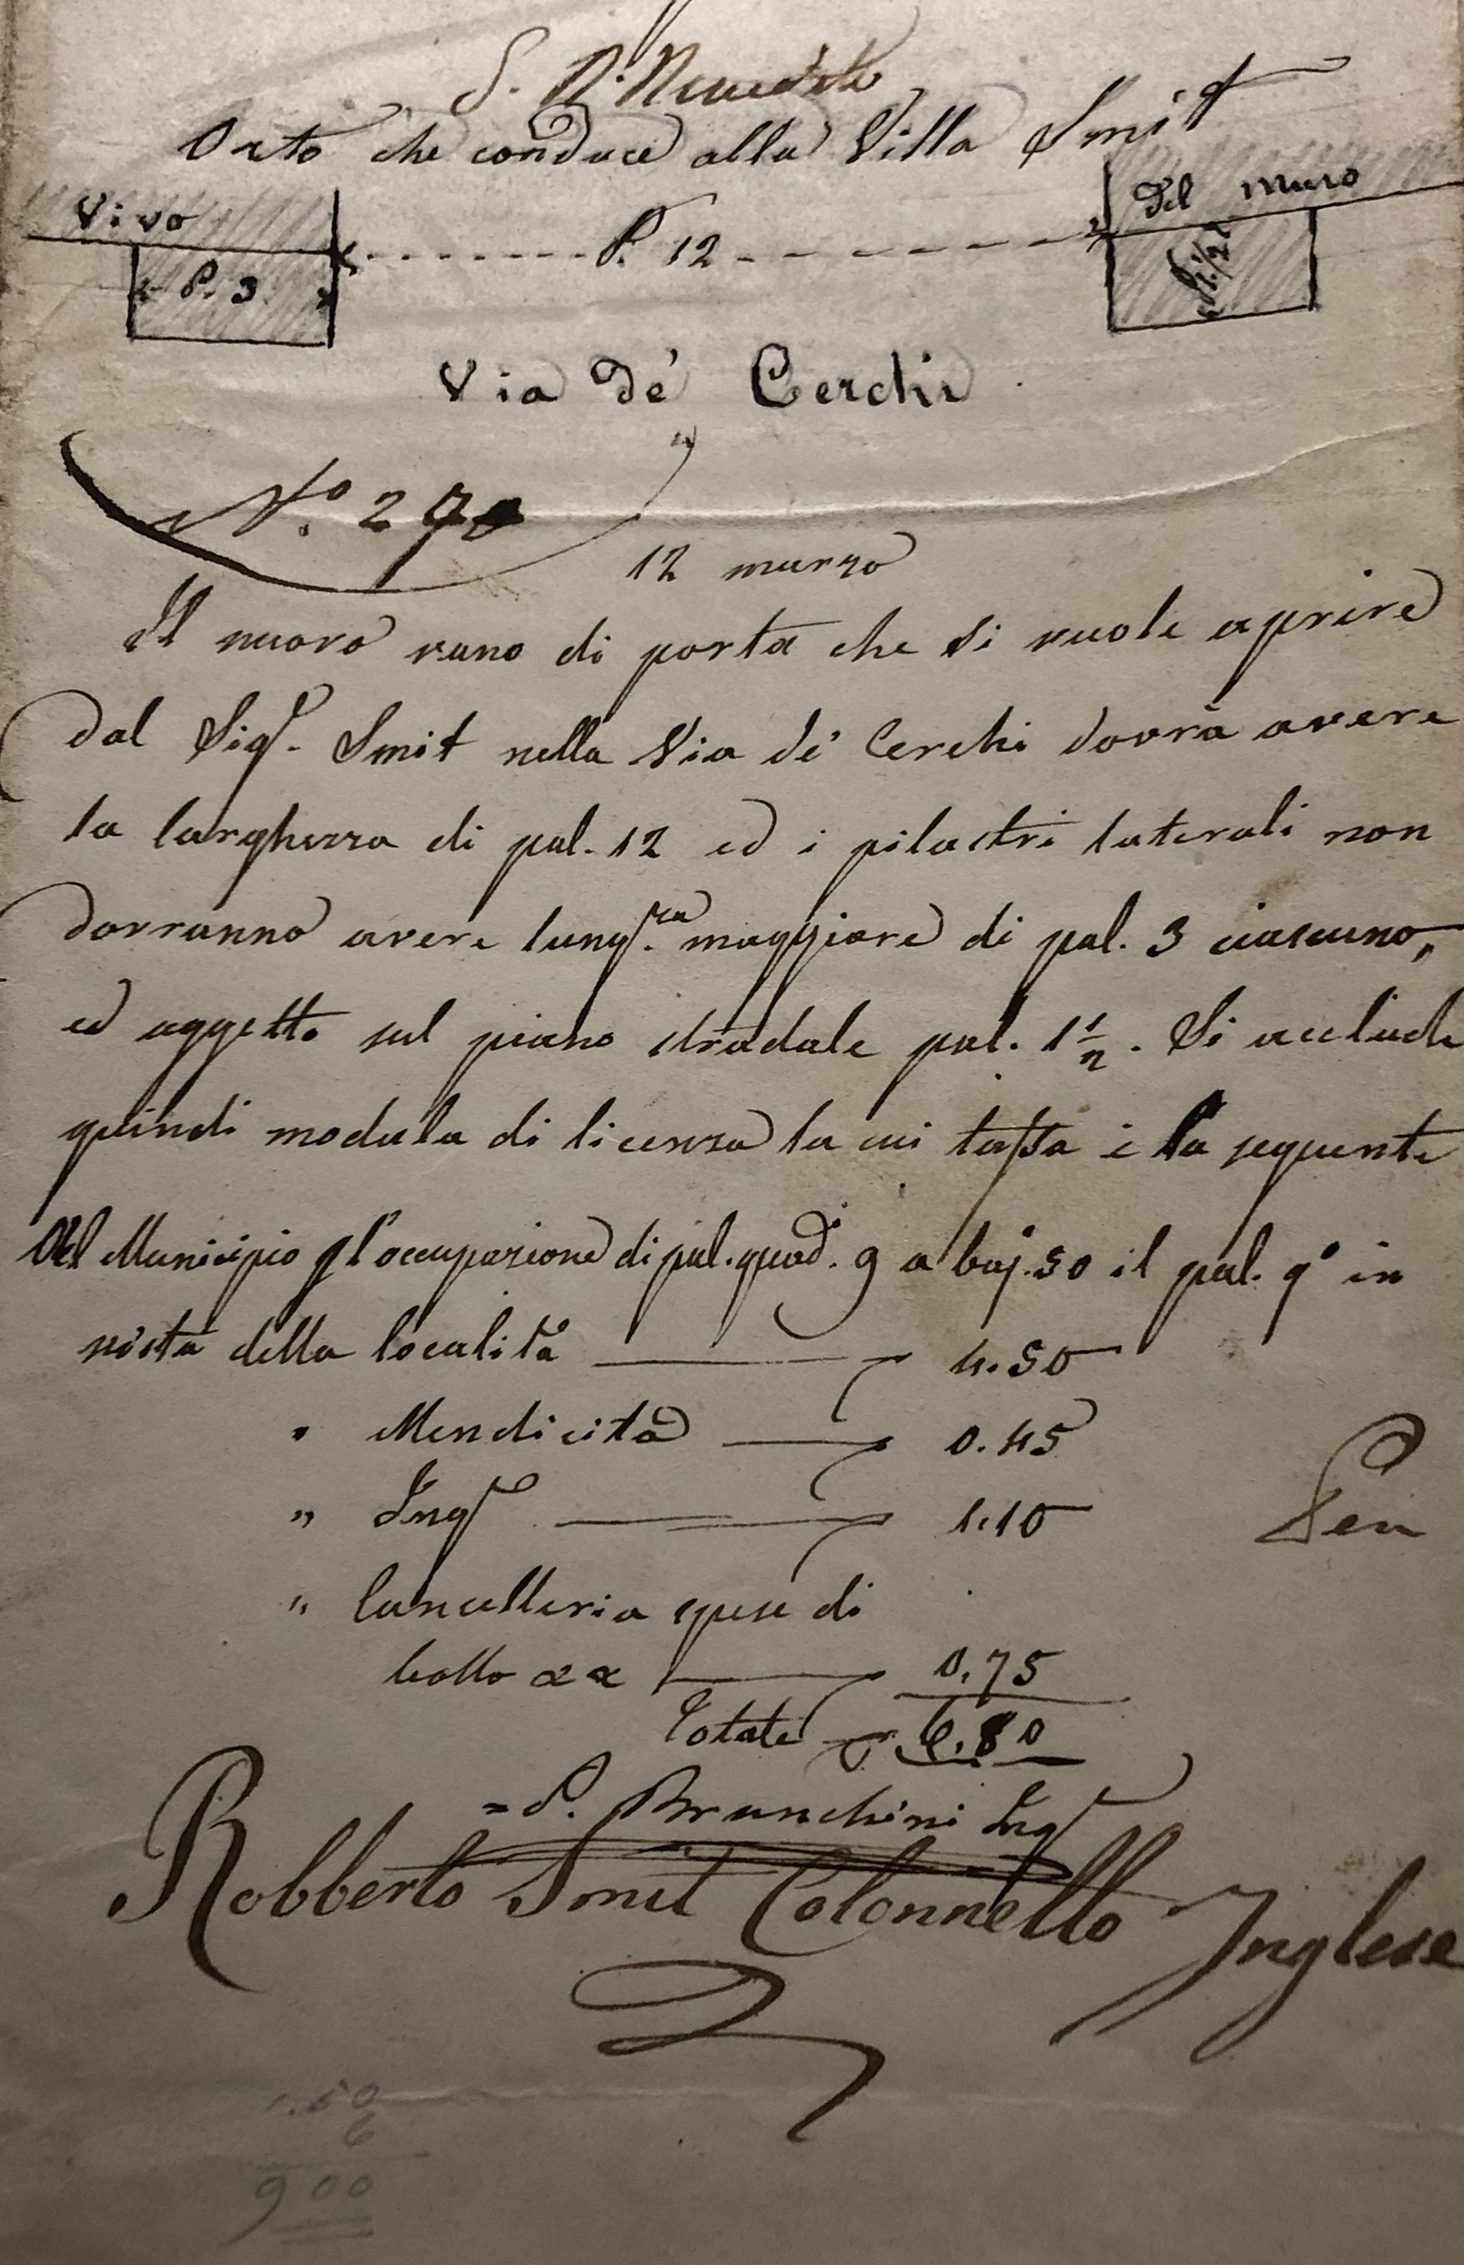 S. N. Benedetto
Orto che conduce alla Villa Smit
Vivo
del muro
P. 12
P. 3
P. 1 1/2
Via de' Cerchi
N.° 27
12 marzo
Il nuovo vano di porta che si vuole aprire
dal Sig.r Smit nella Via de' Cerchi dovrà avere
la larghezza di pal. 12 ed i pilastri laterali non
dovranno avere lung.za maggiore di pal. 3 ciascuno,
ed aggetto sul piano stradale pal. 1 1/2. Si acclude
quindi modula di licenza la cui tassa è la seguente
Del Municipio p l'occupazione di pal. quad.i 9 a baj. 50 il pal. q.o in
vista della località 4.50
" Mendicità 0.45
" Ing.r 1.10
" Cancelleria spese di
bollo 0.75
Totale 6.80
= P. Branchini Ing.r
Robberto Smit Colonnello Inglese
1.50
6
9 00